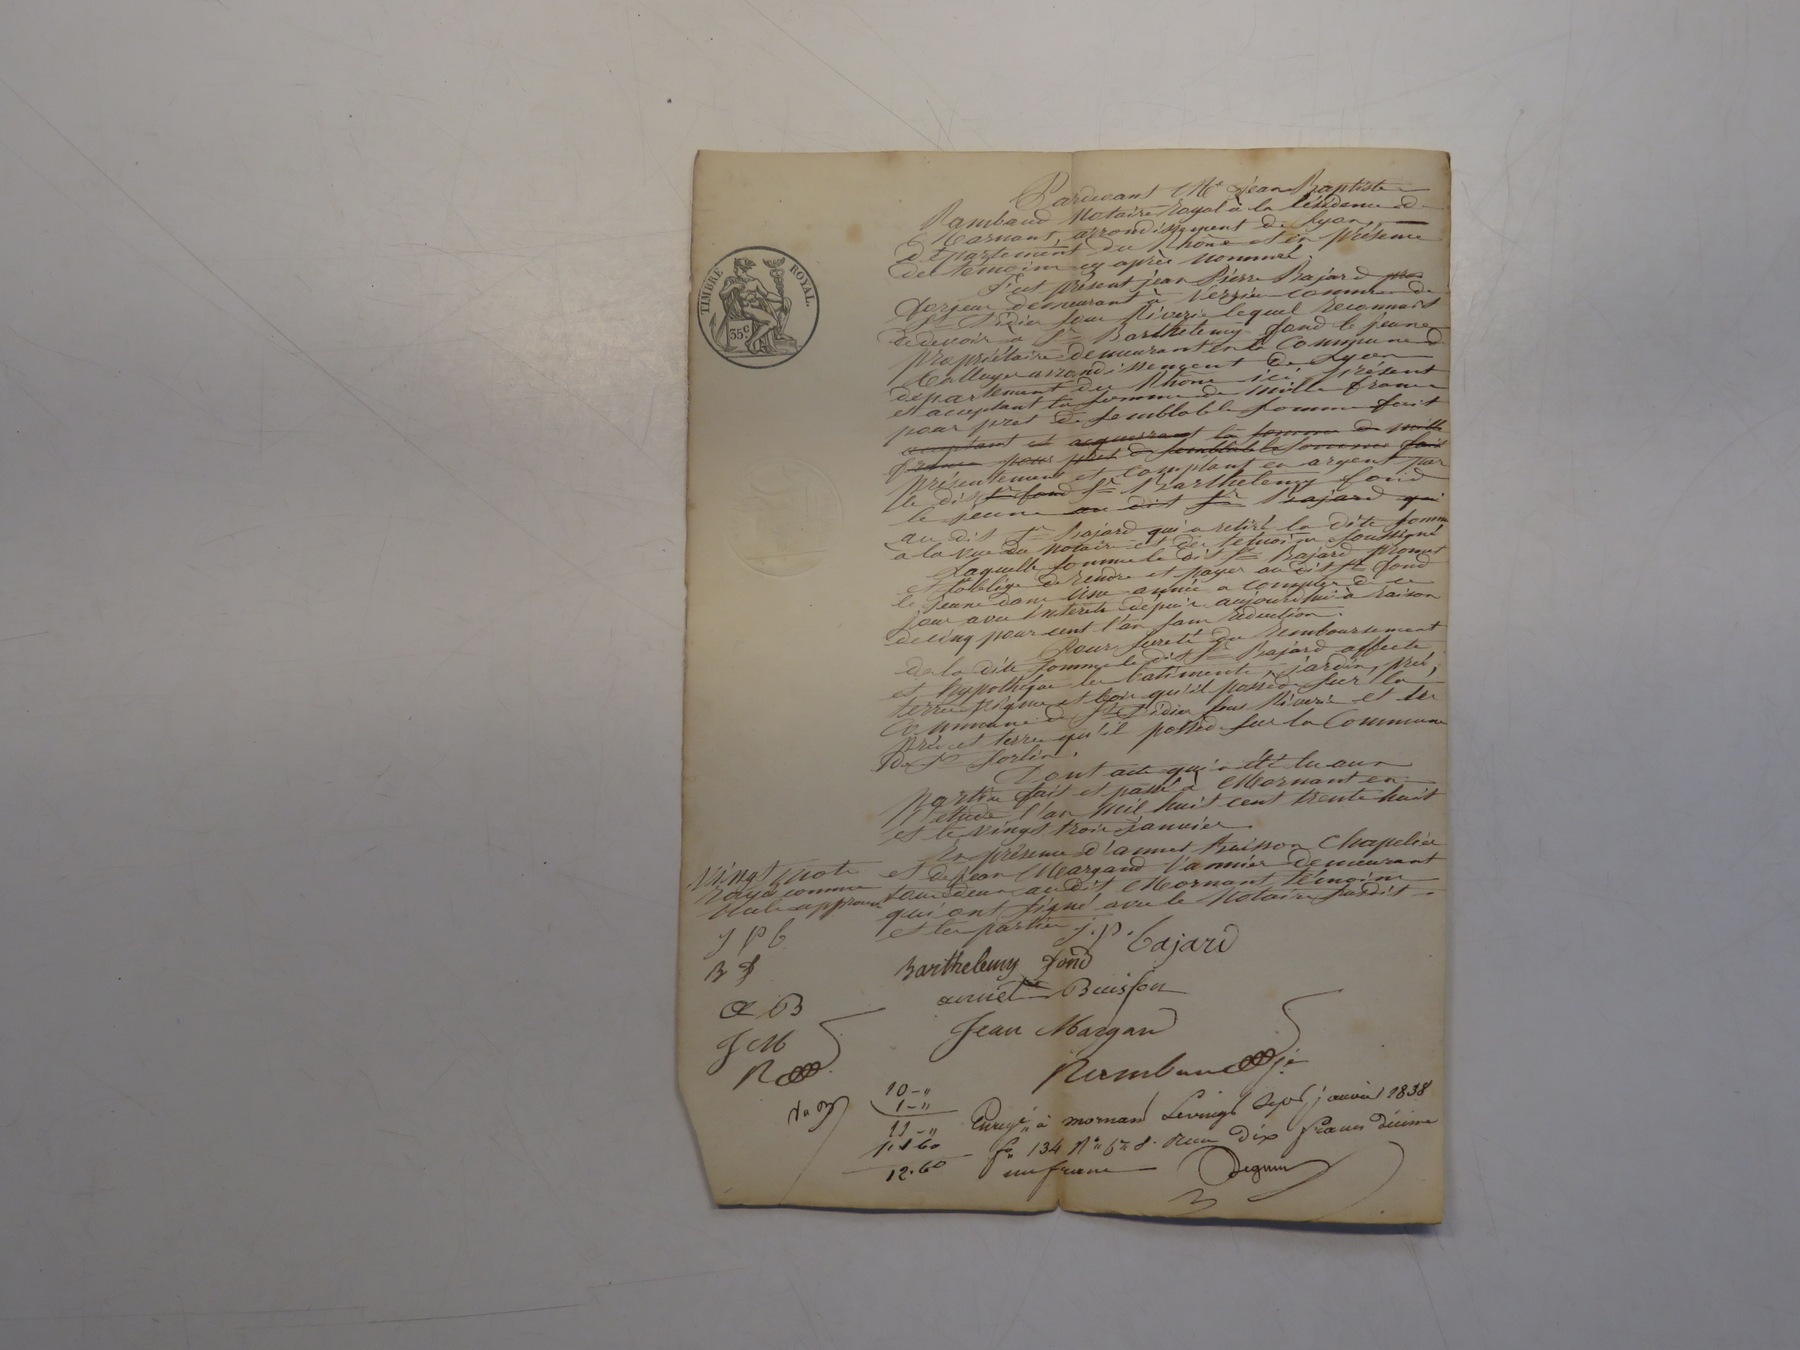 TIMBRE ROYAL.
35c
Pardevant Me Jean Baptiste
Rambaud Notaire Royal à la résidence de
Mornant, arrondissement de Lyon,
Département du Rhône et en présence
des témoins cy après nommés.
S'est présent jean Pierre Bajard pro
demeurant à commune de
St Didier sous Riverie lequel reconnait
devoir à Sr Barthelemy fond le jeune
propriétaire demeurant en la Commune de
arrondissement de Lyon
département du Rhône ici présent
et acceptant la somme de mille francs
pour pret de semblable somme fait
acceptant et acquerrant la somme de mille
francs pour pret de semblable somme fait
présentement et comptant en argent par
le dit Sr fond Sr Barthelemy fond
le jeune au dit Sr Bajard qui
au dit Sr Bajard qui a retiré la dite somme
a la vue du notaire et des témoins soussignés
Laquelle somme le dit Sr Bajard promet
et s'oblige de rendre et payer au dit Sr fond
le jeune dans une année a compter de ce
jour avec interets depuis aujourd'hui à raison
de cinq pour cent l'an sans réduction.
Pour sureté du Remboursement
de la dite somme le dit Sr Bajard affecte
et hypothèque les batiments, jardin, pré,
terre vigne et bois qu'il possède sur la
Commune de St Didier sous Riverie et les
prés et terres qu'il possède sur la Commune
de St Sorlin.
Dont acte qui a été lu aux
parties fait et passé à Mornant en
l'étude l'an mil huit cent trente huit
et le vingt trois janvier.
En présence d'annet Buisson Chapelier
et de jean Margand demeurant
tous deux au dit Mornant témoins
qui ont signé avec le Notaire susdit
et les parties
Vingt mots
Rayés comme
nuls approuvés
j p b
B f
a B
J M
R
j. p. bajard
Barthelemy fond
annet Buisson
Jean Margand
Rambaud
10 - "
1 - "
11 - "
1.60
12.60
Enregé à mornant Le vingt sept janvier 1838
fo 134 Ro Reçu dix francs décime
un franc